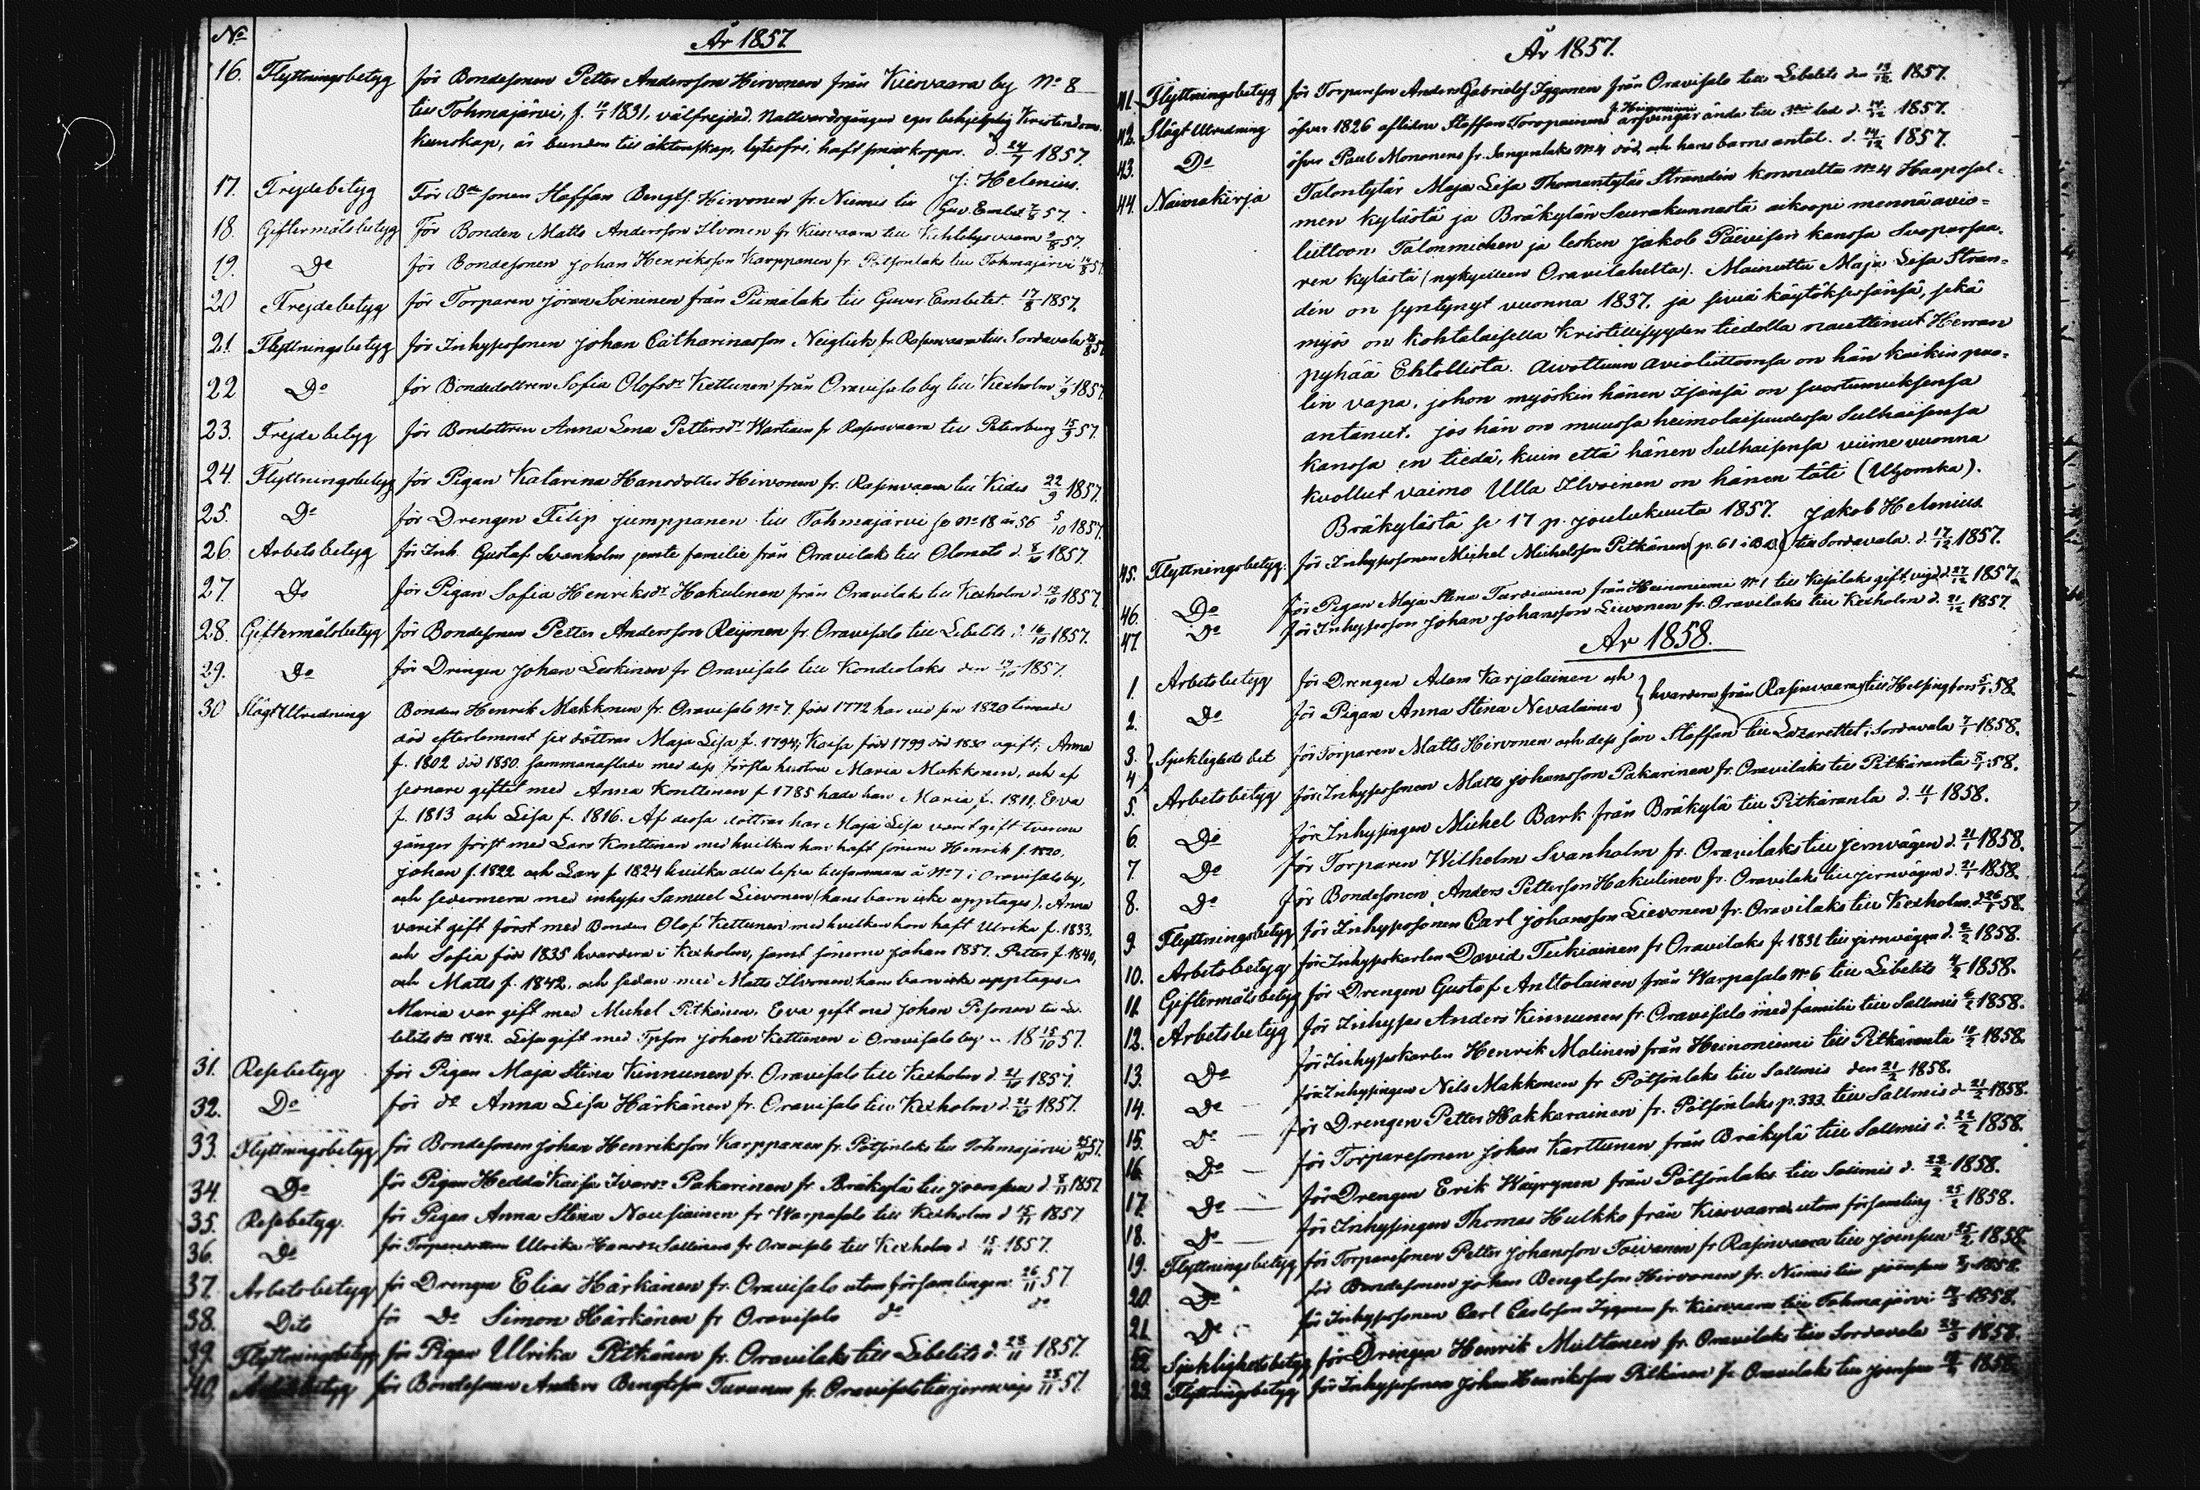 No
År 1857.
16. Flyttningsbetyg för Bondesonen Petter Andersson Hirvonen från Kiesvaara by No 8
till Tohmajärvi, f. 1831, välfrejdad. Nattvardsgången eger behjelplig Kristendoms
kunskap, är bunden till äktenskap, lytesfri, haft koppor. d. 24/7 1857.
J. Helenius.
17. Frejdebetyg För Bde sonen Staffan Bengts. Hirvonen fr. Niemis till Guv. Embet 57.
18. Giftermålsbetyg För Bonden Matts Andersson Ilvonen fr Kiesvaara till Kihtelysvaara 57.
19. Do för Bondesonen Johan Henriksson Karppanen fr. Pötsönlaks till Tohmajärvi 14/8 57
20 Frejdebetyg för Torparen Jöran Soininen från Piimälaks till Guver. Embetet. 17/8 1857.
21 Flyttningsbetyg för Inhysessonen Johan Catharinasson Neiglick fr. Rasinvaara till Sordavala
22 Do för Bondedottren Sofia Olofsdr Kettunen från Oravisalo by till Kexholm 1857
23. Frejdebetyg för Bondottren Anna Lena Pettersdr Wartiain fr Rasinvaara till Petersburg 57.
24. Flyttningsbetyg för Pigan Katarina Hansdotter Hirvonen fr. Rasinvaara till Kides 22/9 1857.
25. Do för Drengen Filip Jumppanen till Tohmajärvi se No 18 år 56 5/10 1857.
26 Arbetsbetyg för Inh. Gustaf Svanholm jemte familie från Oravilaks till Olonets d. 1857.
27. Do för Pigan Sofia Henriksdr Hakulinen från Oravilaks till Kexholm d. 1857.
28. Giftermålsbetyg för Bondesonen Petter Andersson Reijonen fr. Oravisalo till Libelits d. 16/10 1857.
29. Do för Drengen Johan Leskinen fr Oravisalo till Kondiolaks den 1857.
30 Slägt Utredning Bonden Henrik Makkonen fr. Oravisalo No 7. född 1772 har vid sin 1820 timade
död efterlemnat sex döttrar Maja Lisa f. 1794, Kaisa född 1799 död 1830 ogift, Anna
f. 1802 död 1850. sammanaflade med dess första hustru Maria Makkonen, och af
sednare giftet med Anna Konttinen f 1785 hade han Maria f. 1811, Eva
f. 1813 och Lisa f. 1816. Af dessa döttrar har Maja Lisa varit gift tvenne
gånger först med Lars Konttinen med hvilken hon haft sönerne Henrik f. 1820,
Johan f. 1822 och Lars f 1824 hvilka alla lefva tillsammans å No 7 i Oravisalo by,
och sedermera med inhyses Samuel Lievonen (hans barn icke upptages), Anna
varit gift först med Bonden Olof Kettunen med hvilken hon haft Ulrika f. 1833,
och Sofia född 1835 hvardera i Kexholm, samt sönerne Johan 1857. Petter f. 1840,
och Matts f. 1842, och sedan med Matts Ilvonen, hans barn icke upptages
Maria var gift med Michel Pitkänen. Eva gift med Johan Pesonen
1842. Lisa gift med Johan Kettunen i Oravisalo by 18 15/10 57.
31. Resebetyg för Pigan Maja Stina Kinnunen fr. Oravisalo till Kexholm d. 21/10 1857.
32. Do för do Anna Lisa Härkänen fr. Oravisalo till Kexholm d. 21/10 1857.
33. Flyttningsbetyg för Bondesonen Johan Henriksson Karppanen fr. Pötsönlaks till Tohmajärvi 57.
34. Do för Pigan Hedda Kaisa Ivarsdr Pakarinen fr Bräkylä till Joensuu d. 1857
35. Resebetyg. för Pigan Anna Stina Nousiainen fr Warpasalo till Kexholm d 1857
36. Do för Ulrika Hansdr Sallinen fr Oravisalo till Kexholm d. 1857.
37. Arbetsbetyg för Drengen Elias Härkänen fr. Oravisalo utom församlingen 26/11 57
38. Dito för Do Simon Härkönen fr Oravisalo do do
39. Flyttningsbetyg för Pigan Ulrika Pitkänen fr. Oravilaks till Libelits d. 28/11 1857.
40. Arbetsbetyg för Bondesonen Anders Bengtsson Turunen fr. Oravisalo till jernväg 57.
År 1857.
41. Flyttningsbetyg för Torpareson Anders Gabrielss Iggonen från Oravisalo till Libelits den 1857.
42. Slägt Utredning öfver 1826 aflidne Staffan Toropainens i Heinoniemi arfvingar ända till led d. 14/12 1857.
43. Do öfver Paul Mononens fr. Jangenlaks No 4 död, och hans barns antal. d. 14/12 1857.
44. Naimakirja Talontytär Maja Lisa Thomantytär Strandén konnulta No 4 Haapasal-
men kylästä ja Bräkylän Seurakunnasta aikoopi mennä avio-
liittoon Talonmiehen ja lesken Jakob Päivisen kanssa Savoparsaa-
ren kylästä (nykyään Oravilahelta). Mainittu Maja Lisa Stran-
dén on syntynyt vuonna 1837. ja siviä käytöksessänsä, sekä
myös on kohtalaisella Kristillisyyden tiedolla nauttinut Herran
pyhää Ehtollista. Aivottuun avioliittoonsa on hän kaikin puo-
lin vapa, johon myöskin hänen Isänsä on suostumuksensa
antanut. Jos hän on muussa heimolaisuudessa Sulhaisensa
kanssa en tiedä, kuin että hänen Sulhaisensa viime vuonna
kuollut vaimo Ulla Ilvoinen on hänen täti
Bräkylästä se 17 p. joulukuuta 1857. Jakob Helenius.
45. Flyttningsbetyg. för Inhysessonen Michel Michelsson Pitkänen (p. 61 i B.) till Sordavala d. 17/12 1857.
46. Do för Pigan Maja Stina Tarviainen från Heinoniemi No 1 till gift vigd d 27/12 1857.
47. Do för Inhysesson Johan Johansson Lievonen fr. Oravilaks till Kexholm d. 31/12 1857.
År 1858.
1. Arbetsbetyg för Drengen Adam Karjalainen och
2. Do för Pigan Anna Stina Nevalainen } hvardera från Rasinvaara till Helsingfors 58.
3. 4 } Sjuklighets bet för Torparen Matts Hirvonen och dess son Staffan till Lazarettet i Sordavala 7/1 1858.
5. Arbetsbetyg för Inhysessonen Matts Johansson Pakarinen fr. Oravilaks till Pitkäranta 58.
6. Do för Inhysingen Michel Bark från Bräkylä till Pitkäranta d. 1858.
7 Do för Torparen Wilhelm Svanholm fr. Oravilaks till jernvägen d. 21/1 1858.
8. Do för Bondesonen Anders Pettersson Hakulinen fr. Oravilaks till jernvägen d. 21/1 1858.
9. Flyttningsbetyg för Inhysessonen Carl Johansson Lievonen fr. Oravilaks till Kexholm d 26/1 58.
10. Arbetsbetyg för Inhyskarlen David Tiekiainen fr Oravilaks f. 1831 till jernvägen d. 2/2 1858.
11. Giftermålsbetyg för Drengen Gustaf Anttolainen från Warpasalo No 6 till Libelits 4/2 1858.
12. Arbetsbetyg för Inhyses Anders Kinnunen fr. Oravisalo med familie till Sallmis 6/2 1858.
13. Do för Inhyskarlen Henrik Malinen från Heinoniemi till Pitkäranta 1858.
14. Do för Inhysingen Nils Makkonen fr Pötsönlaks till Sallmis den 21/2 1858.
15. Do för Drengen Petter Hakkarainen fr. Pötsönlaks p. 333. till Sallmis d 21/2 1858.
16. Do för Torparesonen Johan Karttunen från Bräkylä till Sallmis d. 22/2 1858.
17. Do för Drengen Erik Wäyrynen från Pötsönlaks till Sallmis d. 22/2 1858.
18. Do för Inhysingen Thomas Hulkko från Kiesvaara utom församling. 25/2 1858.
19. Flyttningsbetyg för Torparesonen Petter Johansson Toivanen fr Rasinvaara till Joensuu 25/2 1858
20. Do för Bondesonen Johan Bengtsson Hirvonen fr. Niemis till Joensuu 1858.
21 Do för Inhysessonen Carl Carlsson Iggonen fr. Kiesvaara till Tohmajärvi 1858.
22. Sjuklighetsbetyg för Drengen Henrik Multanen fr. Oravilaks till Sordavala 24/3 1858.
23. Flyttningsbetyg för Inhysessonen Johan Henriksson Pitkänen fr Oravilaks till Joensuu 1858